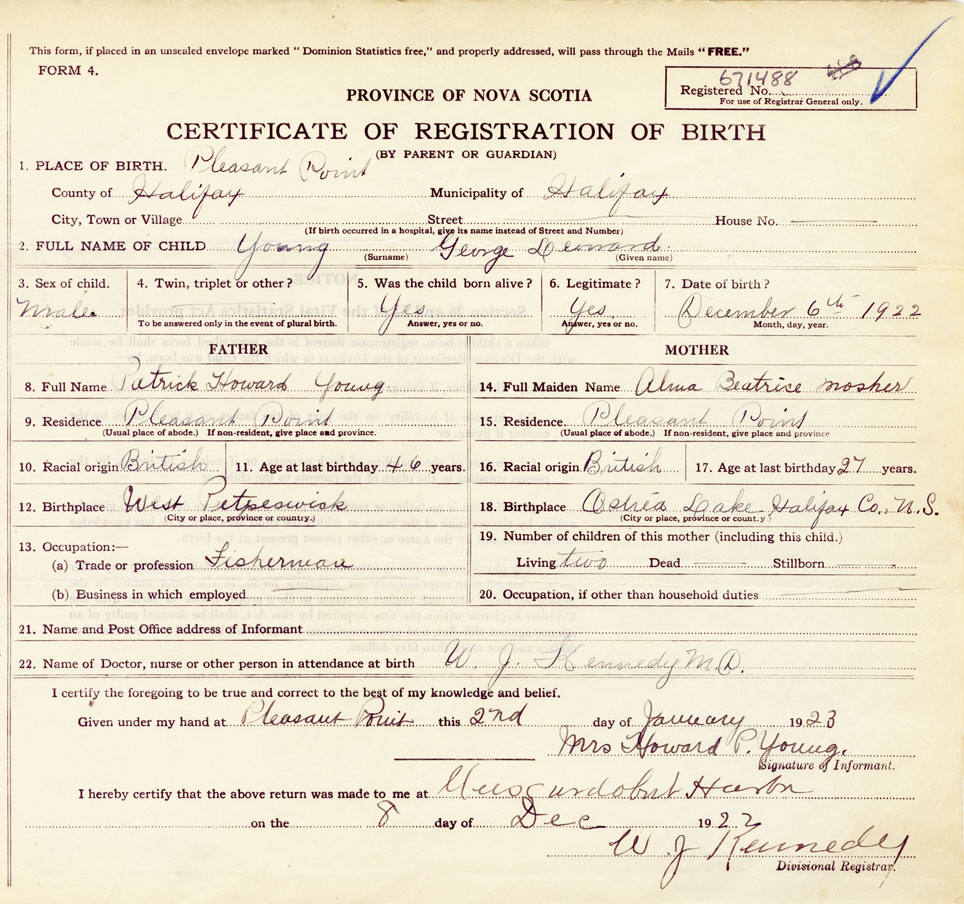 This form, if placed in an unsealed envelope marked "Dominion Statistics free," and properly addressed, will pass through the Mails "FREE."
FORM 4.
671488
Registered No.
For use of Registrar General only.
PROVINCE OF NOVA SCOTIA
CERTIFICATE OF REGISTRATION OF BIRTH
(BY PARENT OR GUARDIAN)
1. PLACE OF BIRTH. Pleasant Point
County of Halifax Municipality of Halifax
City, Town or Village Street House No.
(If birth occurred in a hospital, give its name instead of Street and Number)
2. FULL NAME OF CHILD Young George Leonard.
(Surname) (Given name)
3. Sex of child. 4. Twin, triplet or other? 5. Was the child born alive? 6. Legitimate? 7. Date of birth?
Male. Yes Yes. December 6th 1922
To be answered only in the event of plural birth. Answer, yes or no. Answer, yes or no. Month, day, year.
FATHER MOTHER
8. Full Name Patrick Howard Young. 14. Full Maiden Name Alma Beatrise Mosher
9. Residence Pleasant Point 15. Residence. Pleasant Point
(Usual place of abode.) If non-resident, give place and province. (Usual place of abode.) If non-resident, give place and province
10. Racial origin British 11. Age at last birthday 46 years. 16. Racial origin British 17. Age at last birthday 27 years.
12. Birthplace West Petpeswick 18. Birthplace Ostrea Lake Halifax Co., N.S.
(City or place, province or country.) (City or place, province or country)
13. Occupation:— 19. Number of children of this mother (including this child.)
(a) Trade or profession Fisherman Living two Dead Stillborn
(b) Business in which employed 20. Occupation, if other than household duties
21. Name and Post Office address of Informant
22. Name of Doctor, nurse or other person in attendance at birth W. J. Kennedy M.D.
I certify the foregoing to be true and correct to the best of my knowledge and belief.
Given under my hand at Pleasant Point this 2nd day of January 1923
Mrs Howard P. Young.
Signature of Informant.
I hereby certify that the above return was made to me at Musquodoboit Harbor
on the 8 day of Dec 1922
W J Kennedy
Divisional Registrar.